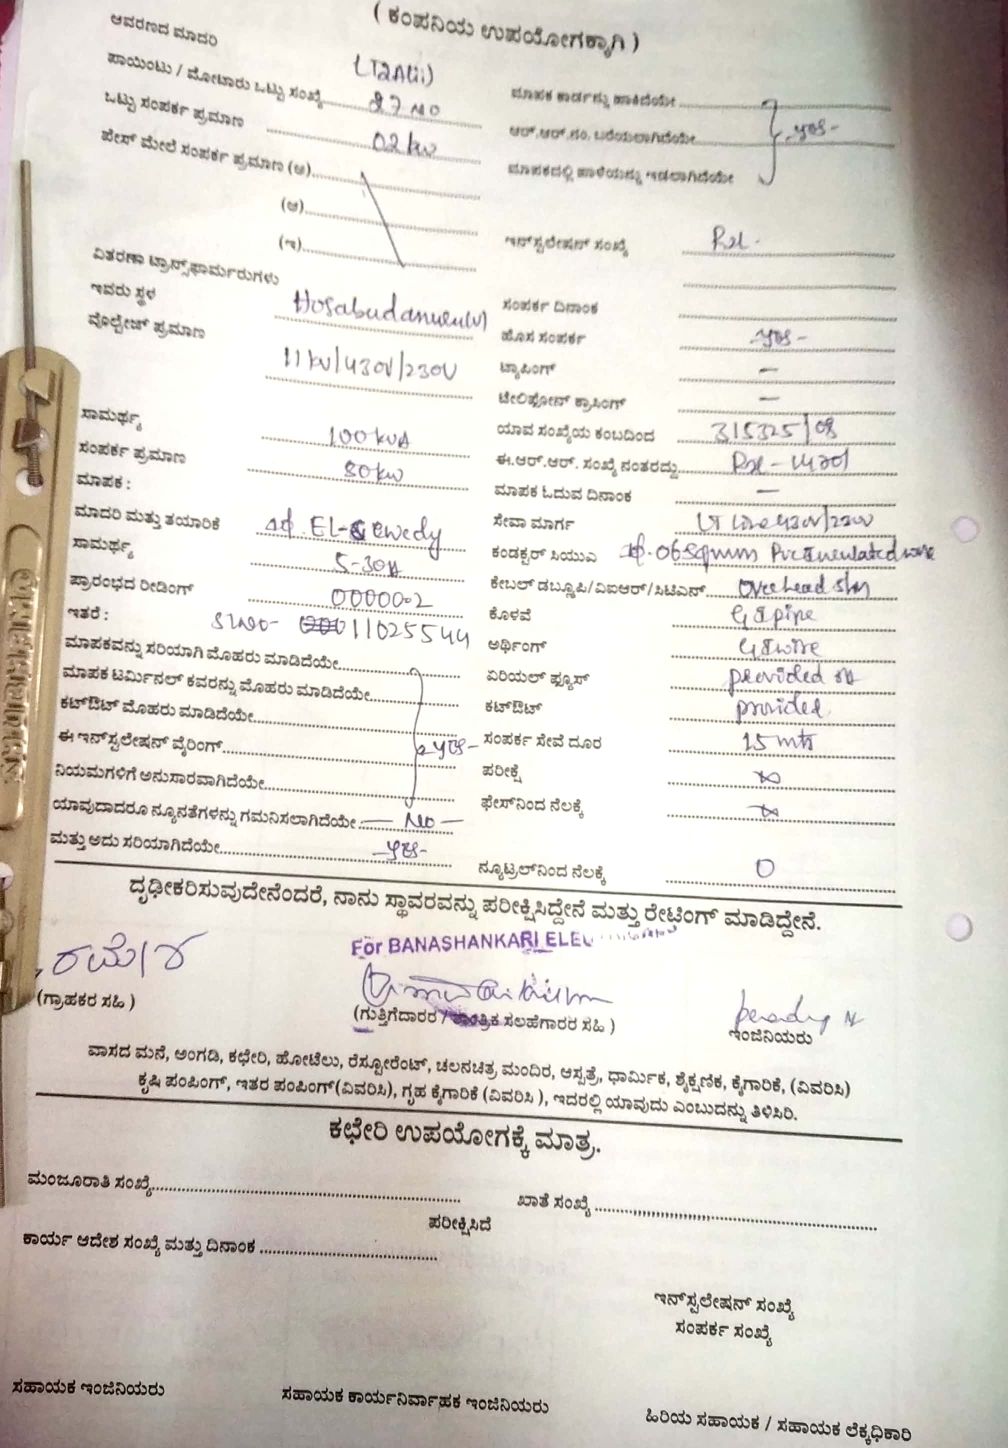 ( ಕಂಪನಿಯ ಉಪಯೋಗಕ್ಕಾಗಿ )
ಆವರಣದ ಮಾದರಿ
ಪಾಯಿಂಟು / ಮೋಟಾರು ಒಟ್ಟು ಸಂಖ್ಯೆ 27 NO
ಒಟ್ಟು ಸಂಪರ್ಕ ಪ್ರಮಾಣ 02 kw
ಪೇಸ್ ಮೇಲೆ ಸಂಪರ್ಕ ಪ್ರಮಾಣ (ಅ)
(ಆ)
(ಇ)
ವಿತರಣಾ ಟ್ರಾನ್ಸ್‌ಫಾರ್ಮರುಗಳು
ಇವರು ಸ್ಥಳ
ವೊಲ್ಟೇಜ್ ಪ್ರಮಾಣ
11 kv/430V/230V
ಸಾಮರ್ಥ್ಯ 100 kVA
ಸಂಪರ್ಕ ಪ್ರಮಾಣ 80 kw
ಮಾಪಕ :
ಮಾದರಿ ಮತ್ತು ತಯಾರಿಕೆ
ಸಾಮರ್ಥ್ಯ 5-30A
ಪ್ರಾರಂಭದ ರೀಡಿಂಗ್ 000000.2
ಇತರೆ : Sl No- 011025544
ಮಾಪಕವನ್ನು ಸರಿಯಾಗಿ ಮೊಹರು ಮಾಡಿದೆಯೇ
ಮಾಪಕ ಟರ್ಮಿನಲ್ ಕವರನ್ನು ಮೊಹರು ಮಾಡಿದೆಯೇ
ಕಟ್‌ಔಟ್ ಮೊಹರು ಮಾಡಿದೆಯೇ
ಈ ಇನ್‌ಸ್ಟಲೇಷನ್ ವೈರಿಂಗ್ yes-
ನಿಯಮಗಳಿಗೆ ಅನುಸಾರವಾಗಿದೆಯೇ
ಯಾವುದಾದರೂ ನ್ಯೂನತೆಗಳನ್ನು ಗಮನಿಸಲಾಗಿದೆಯೇ — No —
ಮತ್ತು ಅದು ಸರಿಯಾಗಿದೆಯೇ -yes-
ಮಾಪಕ ಕಾರ್ಡನ್ನು ಹಾಕಿದೆಯೇ
ಆರ್.ಆರ್.ನಂ. ಬರೆಯಲಾಗಿದೆಯೇ -yes-
ಮಾಪಕದಲ್ಲಿ ಹಾಳೆಯನ್ನು ಇಡಲಾಗಿದೆಯೇ
ಇನ್‌ಸ್ಟಲೇಷನ್ ಸಂಖ್ಯೆ
ಸಂಪರ್ಕ ದಿನಾಂಕ
ಹೊಸ ಸಂಪರ್ಕ -yes-
ಟ್ಯಾಪಿಂಗ್ —
ಟೆಲಿಫೋನ್ ಕ್ರಾಸಿಂಗ್ —
ಯಾವ ಸಂಖ್ಯೆಯ ಕಂಬದಿಂದ 315325/08
ಈ.ಆರ್.ಆರ್. ಸಂಖ್ಯೆ ನಂತರದ್ದು
ಮಾಪಕ ಓದುವ ದಿನಾಂಕ —
ಸೇವಾ ಮಾರ್ಗ
ಕಂಡಕ್ಟರ್ ಸಿಯುಎ 06 sqmm
ಕೇಬಲ್ ಡಬ್ಲ್ಯೂಪಿ/ವಿಐಆರ್/ಸಿಟಿಎಸ್ overhead
ಕೊಳವೆ GI pipe
ಅರ್ಥಿಂಗ್ GI wire
ಏರಿಯಲ್ ಫ್ಯೂಸ್ provided
ಕಟ್‌ಔಟ್ provided
ಸಂಪರ್ಕ ಸೇವೆ ದೂರ 15 mts
ಪರೀಕ್ಷೆ
ಫೇಸ್‌ನಿಂದ ನೆಲಕ್ಕೆ
ನ್ಯೂಟ್ರಲ್‌ನಿಂದ ನೆಲಕ್ಕೆ 0
ದೃಢೀಕರಿಸುವುದೇನೆಂದರೆ, ನಾನು ಸ್ಥಾವರವನ್ನು ಪರೀಕ್ಷಿಸಿದ್ದೇನೆ ಮತ್ತು ರೇಟಿಂಗ್ ಮಾಡಿದ್ದೇನೆ.
For BANASHANKARI
ರಮೇಶ
(ಗ್ರಾಹಕರ ಸಹಿ )
(ಗುತ್ತಿಗೆದಾರರ / ತಾಂತ್ರಿಕ ಸಲಹೆಗಾರರ ಸಹಿ )
ಇಂಜಿನಿಯರು
ವಾಸದ ಮನೆ, ಅಂಗಡಿ, ಕಛೇರಿ, ಹೋಟೆಲು, ರೆಸ್ಟೋರೆಂಟ್, ಚಲನಚಿತ್ರ ಮಂದಿರ, ಆಸ್ಪತ್ರೆ, ಧಾರ್ಮಿಕ, ಶೈಕ್ಷಣಿಕ, ಕೈಗಾರಿಕೆ, (ವಿವರಿಸಿ)
ಕೃಷಿ ಪಂಪಿಂಗ್, ಇತರ ಪಂಪಿಂಗ್(ವಿವರಿಸಿ), ಗೃಹ ಕೈಗಾರಿಕೆ (ವಿವರಿಸಿ ), ಇದರಲ್ಲಿ ಯಾವುದು ಎಂಬುದನ್ನು ತಿಳಿಸಿರಿ.
ಕಛೇರಿ ಉಪಯೋಗಕ್ಕೆ ಮಾತ್ರ.
ಮಂಜೂರಾತಿ ಸಂಖ್ಯೆ
ಖಾತೆ ಸಂಖ್ಯೆ
ಪರೀಕ್ಷಿಸಿದೆ
ಕಾರ್ಯ ಆದೇಶ ಸಂಖ್ಯೆ ಮತ್ತು ದಿನಾಂಕ
ಇನ್‌ಸ್ಟಲೇಷನ್ ಸಂಖ್ಯೆ
ಸಂಪರ್ಕ ಸಂಖ್ಯೆ
ಸಹಾಯಕ ಇಂಜಿನಿಯರು
ಸಹಾಯಕ ಕಾರ್ಯನಿರ್ವಾಹಕ ಇಂಜಿನಿಯರು
ಹಿರಿಯ ಸಹಾಯಕ / ಸಹಾಯಕ ಲೆಕ್ಕಧಿಕಾರಿ